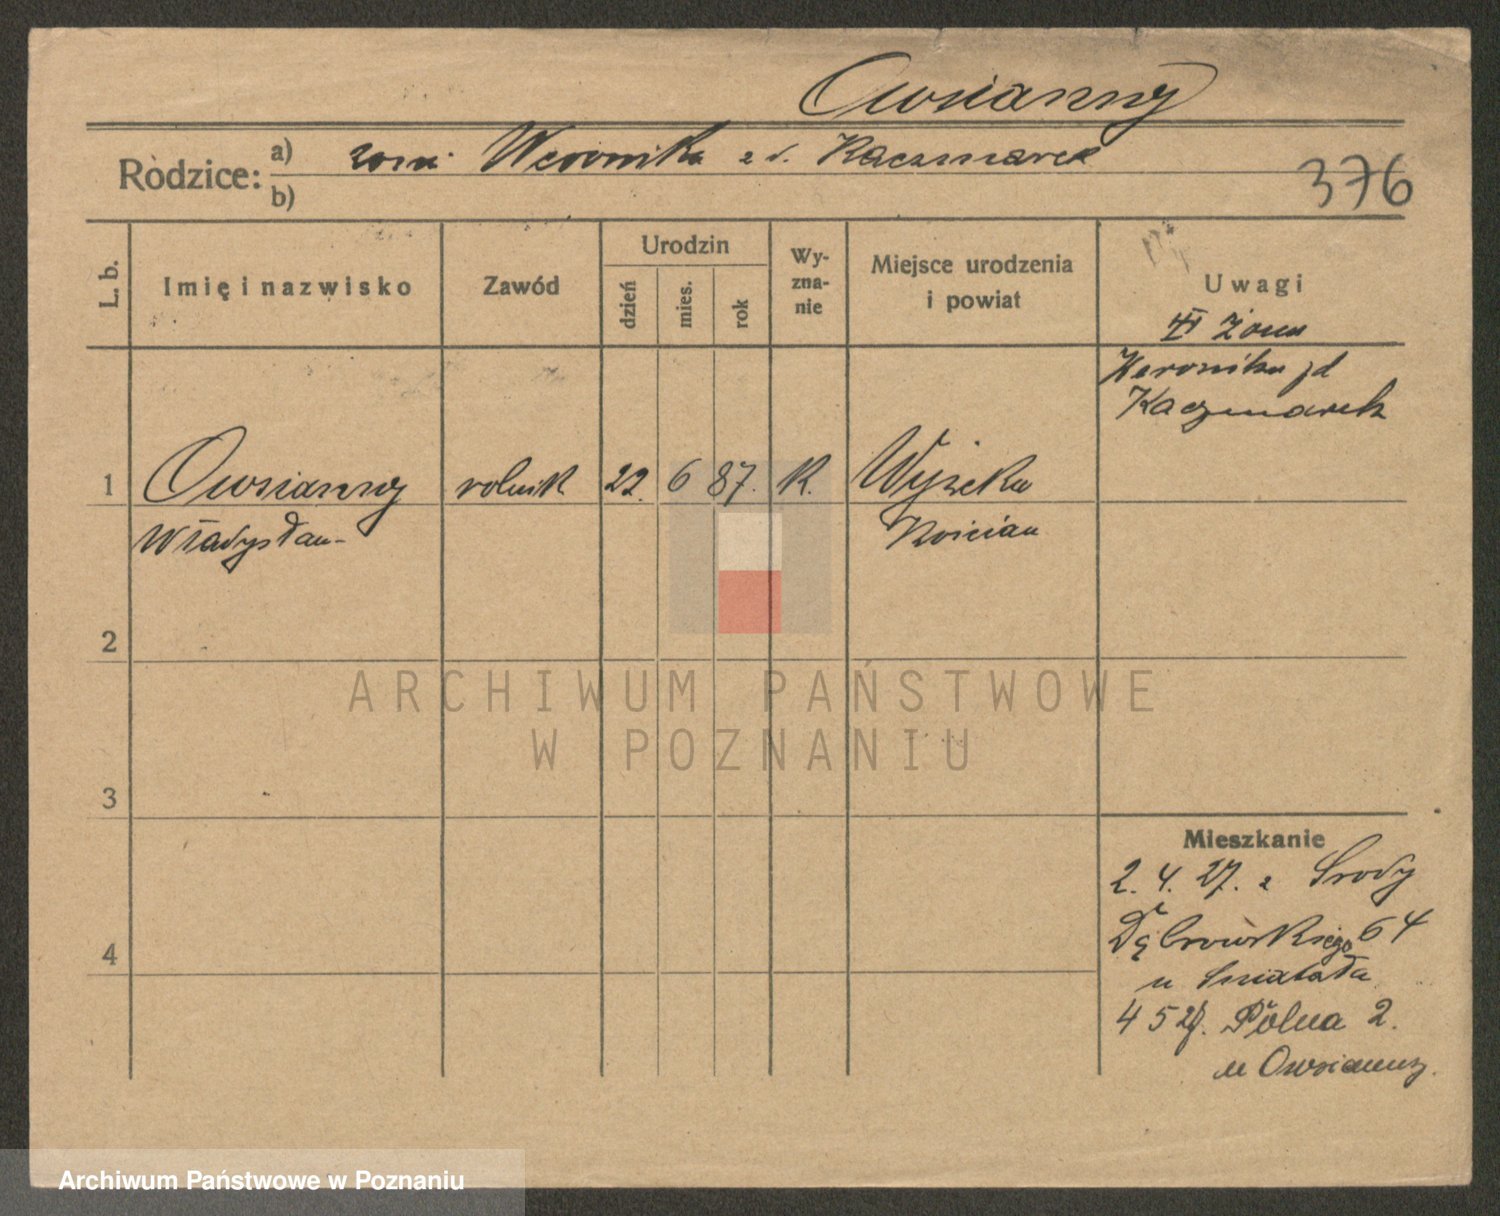 Owsianny
Rodzice: a) Weronika z d. Kaczmarek
b)
376
L. b.
Imię i nazwisko
Zawód
Urodzin
dzień
mies.
rok
Wy-
zna-
nie
Miejsce urodzenia
i powiat
Uwagi
II żona
Weronika zd
Kaczmarek
1 Owsianny rolnik 22. 6 87. K.
Władysław
Kościan
2
3
4
Mieszkanie
2. 4. 27. z Środy
Dąbrowskiego 64
u
4 5 27. Polna 2.
u Owsianny.
ARCHIWUM PAŃSTWOWE
W POZNANIU
Archiwum Państwowe w Poznaniu